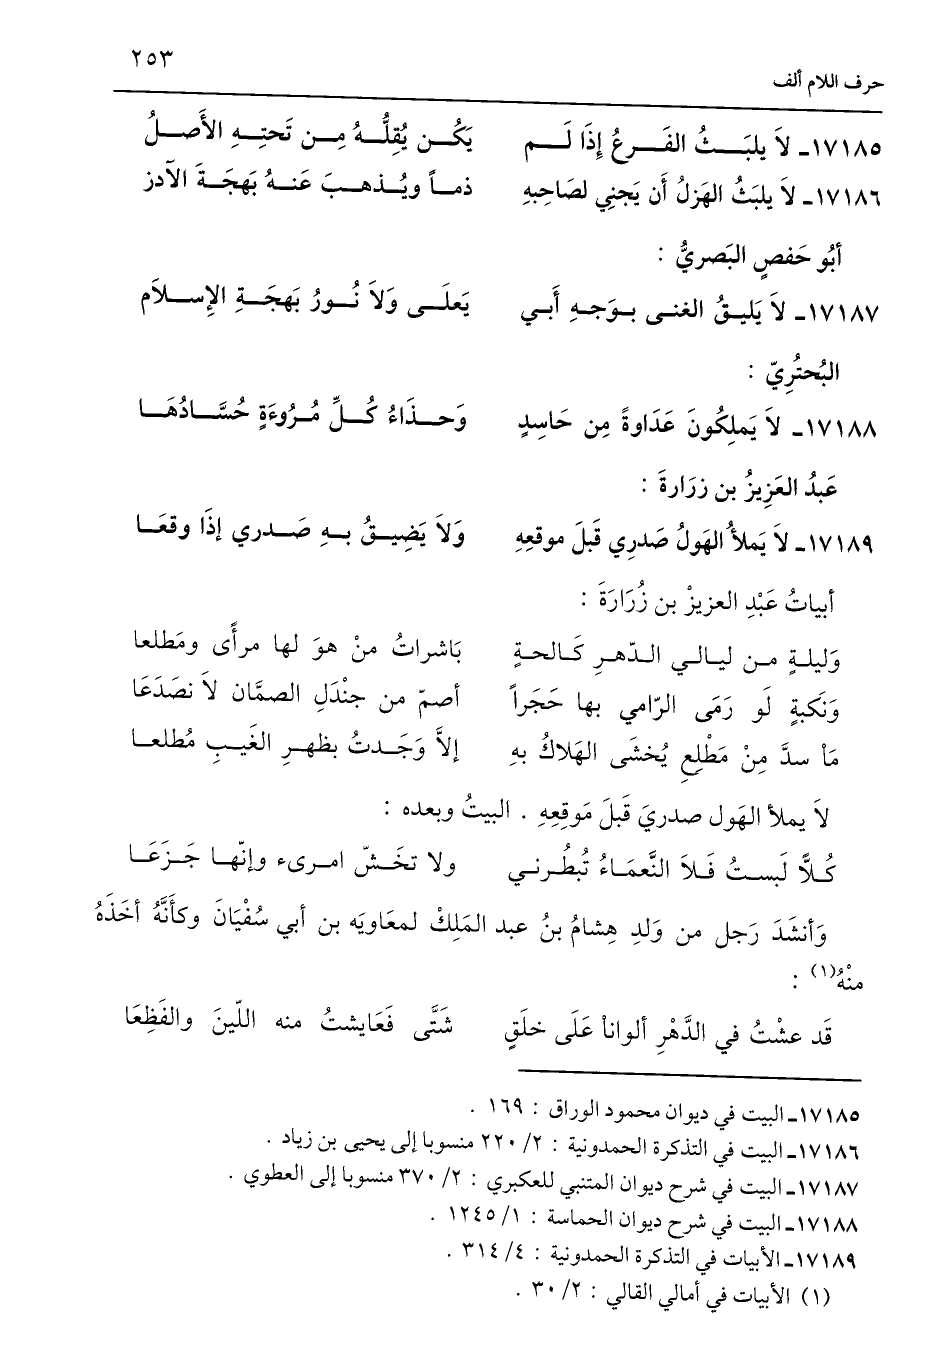 ٢٥٣
حرف اللام ألف
١٧١٨٥ـ لاَ يلبَـــثُ الفَـــرعُ إذَا لَـــم يَكُـــن يُقِلُّـــهُ مِـــن تَحتِـــهِ الأَصـــلُ
١٧١٨٦ـ لاَ يلبَثُ الهَزلُ أَن يَجنِي لصَاحِبهِ ذمـاً ويُـذهـبَ عَنـهُ بَهجَـةَ الآدز
أبُو حَفصٍ البَصريُّ :
١٧١٨٧ـ لاَ يَليـقُ الغنـى بـوَجـهِ أَبـي يَعلَـى وَلاَ نُـورُ بَهجَـةِ الإِسـلاَم
البُحتُرِيّ :
١٧١٨٨ـ لاَ يَملِكُونَ عَدَاوةً مِن حَاسِدٍ وَحـذَاءُ كُـلِّ مُـرُوءَةٍ حُسَّـادُهَـا
عَبدُ العَزِيزُ بن زرَارةَ :
١٧١٨٩ـ لاَ يَملأُ الهَولُ صَدرِي قَبلَ موقعِهِ وَلاَ يَضِيـقُ بـهِ صَـدري إذَا وقعَـا
أبياتُ عَبْدِ العزيزْ بن زُرَارَةَ :
وَليلـةٍ مـن ليـالـي الـدّهـرِ كَـالحـةٍ بَاشراتُ منْ هوَ لها مرأًى ومَطلعا
وَنَكبةٍ لَو رَمَى الرّامي بها حَجَراً أصمّ من جنْدَلِ الصمَّان لاَ نصَدَعَا
مَاْ سدَّ مِنْ مَطْلِعٍ يُخشَى الهَلاكُ بهِ إلاَّ وَجَـدتُ بظهـرِ الغَيـبِ مُطلعـا
لاَ يملأ الهَول صدريَ قَبلَ مَوقِعِهِ . البيتُ وبعده :
كُـلاًّ لَبسـتُ فَـلاَ النَّعمَـاءُ تُبطُـرنـي ولا تخَشّ امـرىء وإنّهـا جَـزَعَـا
وَأنشَدَ رَجل من وَلدِ هِشامُ بنُ عبد المَلِكْ لمعَاويَه بن أبي سُفْيَانَ وكأَنَّهُ أخَذَهُ
منْهُ(١) :
قَد عشْتُ في الدَّهْرِ ألوانا عَلَى خلَقٍ شَتَّى فَعَايشتُ منه اللّينَ والفَظِعَا
١٧١٨٥ـ البيت في ديوان محمود الوراق : ١٦٩ .
١٧١٨٦ـ البيت في التذكرة الحمدونية : ٢/ ٢٢٠ منسوبا إلى يحيى بن زياد .
١٧١٨٧ـ البيت في شرح ديوان المتنبي للعكبري : ٢/ ٣٧٠ منسوبا إلى العطوي .
١٧١٨٨ـ البيت في شرح ديوان الحماسة : ١/ ١٢٤٥ .
١٧١٨٩ـ الأبيات في التذكرة الحمدونية : ٤/ ٣١٤ .
(١) الأبيات في أمالي القالي : ٢/ ٣٠ .